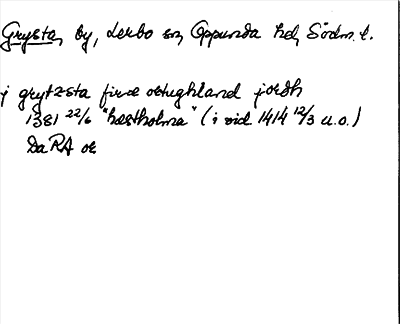 Grysta, by, Lerbo sn, Oppunda hd, Södm. l.
j grytzsta fira ørtughland jordh
1381 22/6 "hæstholma" (i vid 1414 12/3 u.o.)
Da RA or